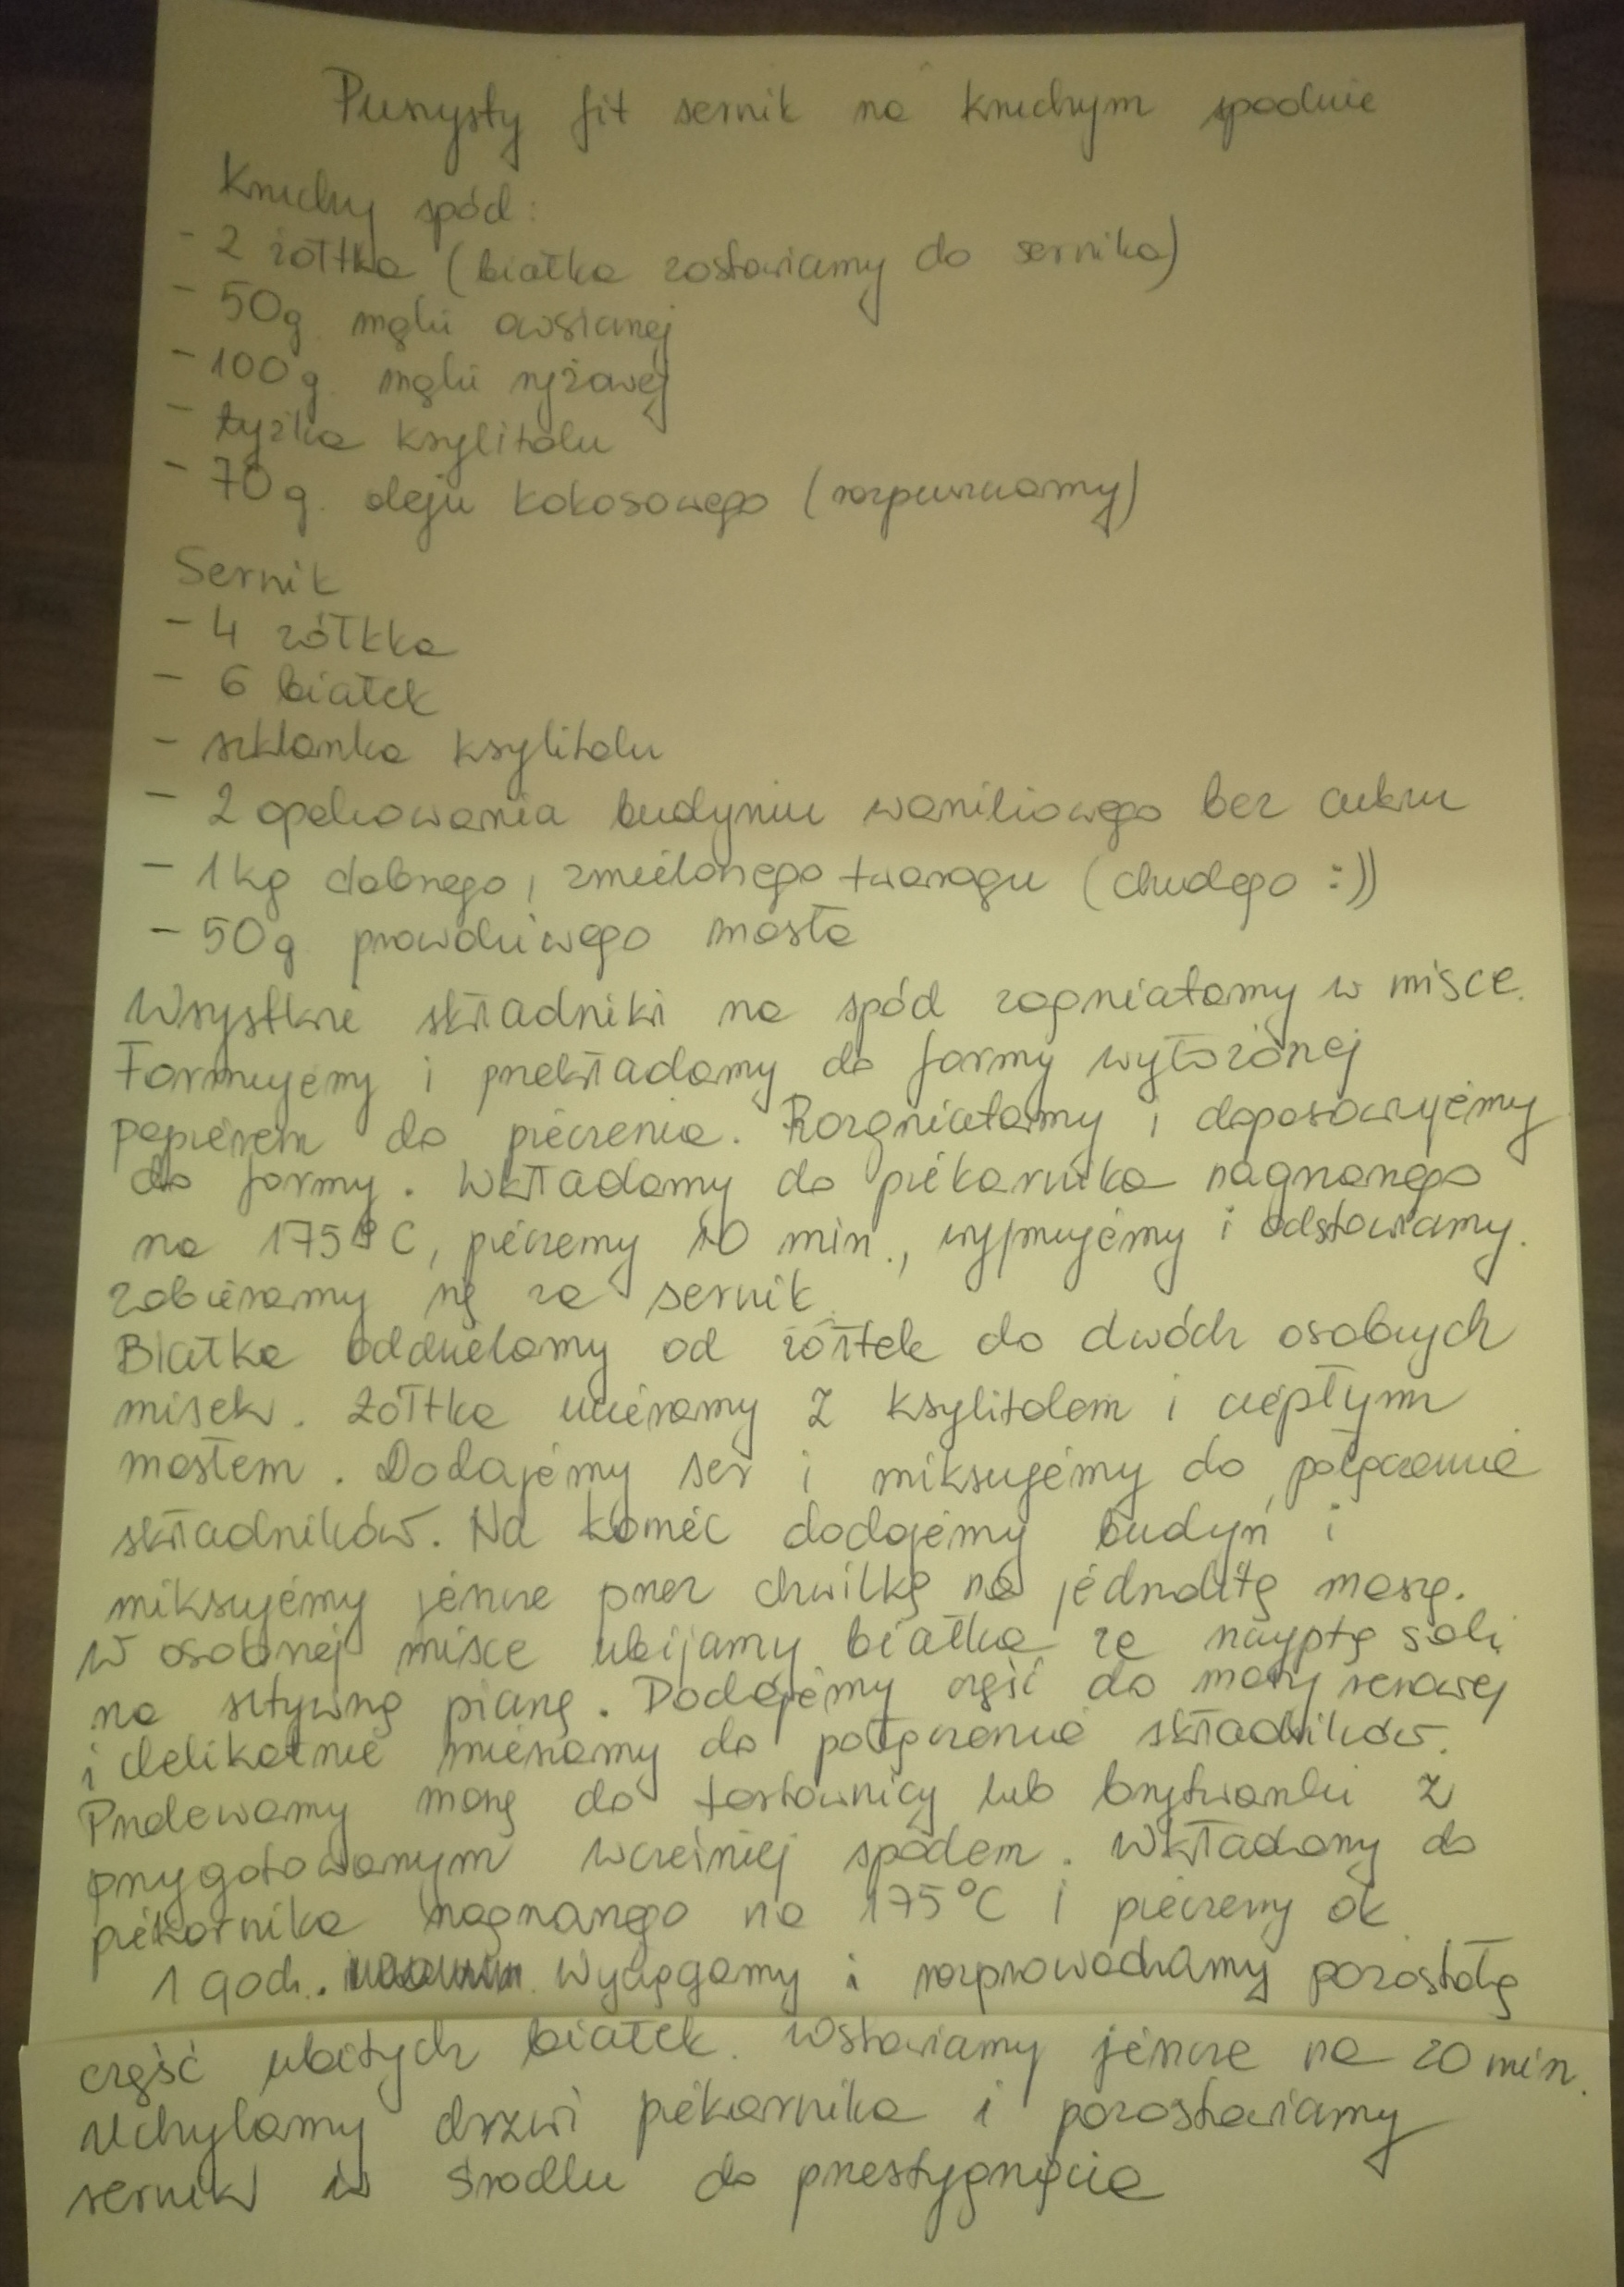 Puszysty fit sernik na kruchym spodzie
Kruchy spód:
- 2 żółtka (białka zostawiamy do sernika)
- 50g mąki owsianej
- 100g mąki ryżowej
- łyżka ksylitolu
- 70g oleju kokosowego (rozpuszczamy)
Sernik
- 4 żółtka
- 6 białek
- szklanka ksylitolu
- 2 opakowania budyniu waniliowego bez cukru
- 1kg dobrego, zmielonego twarogu (chudego :))
- 50g prawdziwego masła
Wszystkie składniki na spód zagniatamy w misce.
Formujemy i przekładamy do formy wyłożonej
papierem do pieczenia. Rozgniatamy i dopasowujemy
do formy. Wkładamy do piekarnika nagrzanego
na 175°C, pieczemy 10 min., wyjmujemy i odstawiamy.
Zabieramy się za sernik.
Białka oddzielamy od żółtek do dwóch osobnych
misek. Żółtka ucieramy z ksylitolem i ciepłym
masłem. Dodajemy ser i miksujemy do połączenia
składników. Na koniec dodajemy budyń i
miksujemy jeszcze przez chwilkę na jednolitą masę.
W osobnej misce ubijamy białka ze szczyptą soli
na sztywną pianę. Dodajemy część do masy serowej
i delikatnie mieszamy do połączenia składników.
Przelewamy masę do tortownicy lub brytwanki z
przygotowanym wcześniej spodem. Wkładamy do
piekarnika nagrzanego na 175°C i pieczemy ok
1 godz. Wyciągamy i rozprowadzamy pozostałą
część ubitych białek. Wstawiamy jeszcze na 20 min.
Uchylamy drzwi piekarnika i pozostawiamy
sernik w środku do przestygnięcia